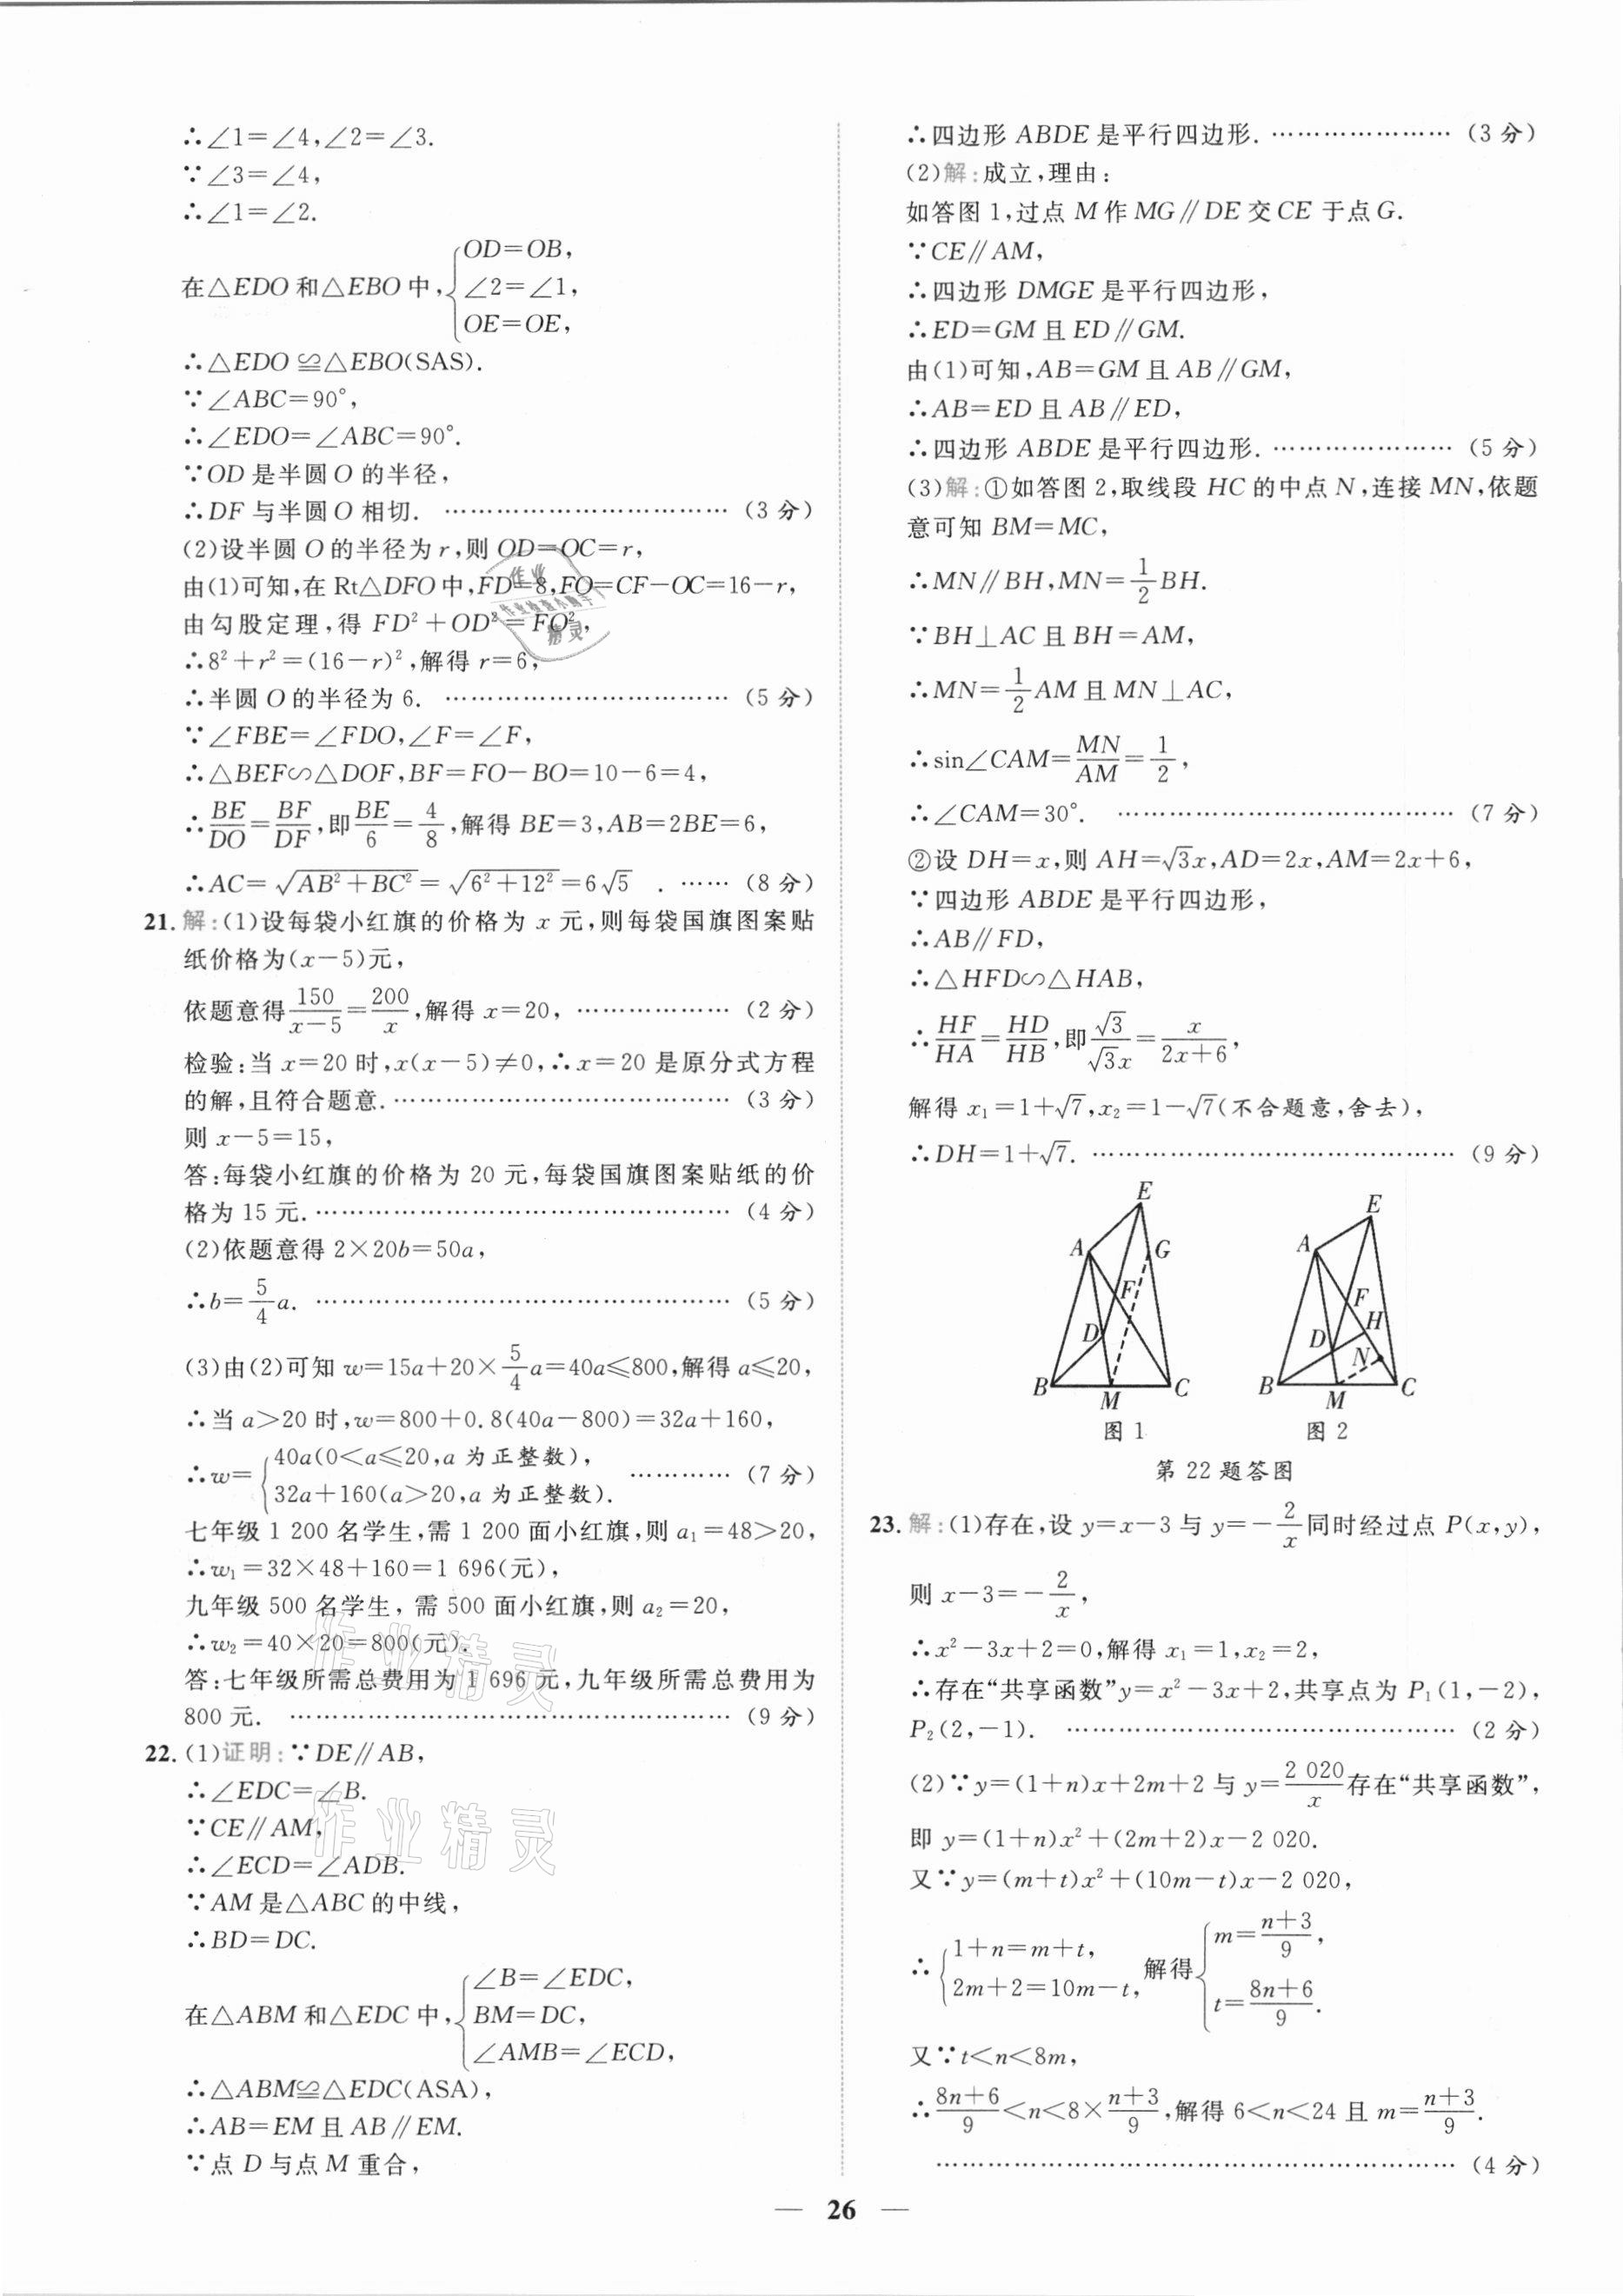 ∴∠1=∠4,∠2=∠3.
∵∠3=∠4,
∴∠1=∠2.
在△EDO和△EBO中,{OD=OB,
∠2=∠1,
OE=OE,
∴△EDO≌△EBO(SAS).
∵∠ABC=90°,
∴∠EDO=∠ABC=90°.
∵OD是半圆O的半径,
∴DF与半圆O相切. ……………………………(3分)
(2)设半圆O的半径为r,则OD=OC=r,
由(1)可知,在Rt△DFO中,FD=8,FO=CF-OC=16-r,
由勾股定理,得FD²+OD²=FO²,
∴8²+r²=(16-r)²,解得r=6,
∴半圆O的半径为6. ……………………………(5分)
∵∠FBE=∠FDO,∠F=∠F,
∴△BEF∽△DOF,BF=FO-BO=10-6=4,
∴BE/DO=BF/DF,即BE/6=4/8,解得BE=3,AB=2BE=6,
∴AC=√(AB²+BC²)=√(6²+12²)=6√5 . ……(8分)
21.解:(1)设每袋小红旗的价格为x元,则每袋国旗图案贴
纸价格为(x-5)元,
依题意得150/(x-5)=200/x,解得x=20, ………………(2分)
检验:当x=20时,x(x-5)≠0,∴x=20是原分式方程
的解,且符合题意. …………………………………(3分)
则x-5=15,
答:每袋小红旗的价格为20元,每袋国旗图案贴纸的价
格为15元. …………………………………………(4分)
(2)依题意得2×20b=50a,
∴b=5/4a. …………………………………………(5分)
(3)由(2)可知w=15a+20×5/4a=40a≤800,解得a≤20,
∴当a>20时,w=800+0.8(40a-800)=32a+160,
∴w={40a(0<a≤20,a为正整数),
32a+160(a>20,a为正整数). …………(7分)
七年级1 200名学生,需1 200面小红旗,则a₁=48>20,
∴w₁=32×48+160=1 696(元),
九年级500名学生,需500面小红旗,则a₂=20,
∴w₂=40×20=800(元).
答:七年级所需总费用为1 696元,九年级所需总费用为
800元. ……………………………………………(9分)
22.(1)证明:∵DE∥AB,
∴∠EDC=∠B.
∵CE∥AM,
∴∠ECD=∠ADB.
∵AM是△ABC的中线,
∴BD=DC.
在△ABM和△EDC中,{∠B=∠EDC,
BM=DC,
∠AMB=∠ECD,
∴△ABM≌△EDC(ASA),
∴AB=EM且AB∥EM.
∵点D与点M重合,
∴四边形ABDE是平行四边形. …………………(3分)
(2)解:成立,理由:
如答图1,过点M作MG∥DE交CE于点G.
∵CE∥AM,
∴四边形DMGE是平行四边形,
∴ED=GM且ED∥GM.
由(1)可知,AB=GM且AB∥GM,
∴AB=ED且AB∥ED,
∴四边形ABDE是平行四边形. …………………(5分)
(3)解:①如答图2,取线段HC的中点N,连接MN,依题
意可知BM=MC,
∴MN∥BH,MN=1/2BH.
∵BH⊥AC且BH=AM,
∴MN=1/2AM且MN⊥AC,
∴sin∠CAM=MN/AM=1/2,
∴∠CAM=30°. …………………………………(7分)
②设DH=x,则AH=√3x,AD=2x,AM=2x+6,
∵四边形ABDE是平行四边形,
∴AB∥FD,
∴△HFD∽△HAB,
∴HF/HA=HD/HB,即√3/√3x=x/(2x+6),
解得x₁=1+√7,x₂=1-√7(不合题意,舍去),
∴DH=1+√7. ……………………………………(9分)
E
A
G
F
D
B
M
C
图1
E
A
F
H
D
N
B
M
C
图2
第22题答图
23.解:(1)存在,设y=x-3与y=-2/x同时经过点P(x,y),
则x-3=-2/x,
∴x²-3x+2=0,解得x₁=1,x₂=2,
∴存在“共享函数”y=x²-3x+2,共享点为P₁(1,-2),
P₂(2,-1). ………………………………………(2分)
(2)∵y=(1+n)x+2m+2与y=2 020/x存在“共享函数”,
即y=(1+n)x²+(2m+2)x-2 020.
又∵y=(m+t)x²+(10m-t)x-2 020,
∴{1+n=m+t,
2m+2=10m-t, 解得{m=(n+3)/9,
t=(8n+6)/9.
又∵t<n<8m,
∴(8n+6)/9<n<8×(n+3)/9,解得6<n<24且m=(n+3)/9.
……………………………………………………(4分)
— 26 —
作业
作业检查小助手
精灵
作业精灵
作业精灵